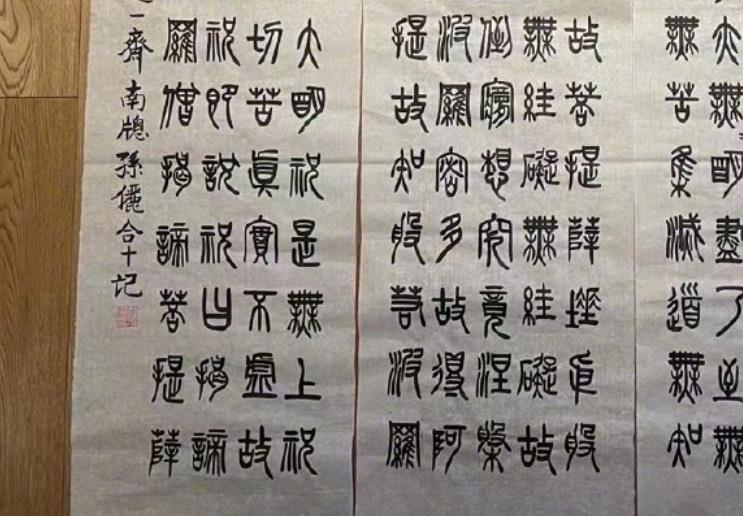 亦無明盡乃至無
無苦集滅道無知
故菩提薩埵依般
無絓礙無絓礙故
倒夢想究竟涅槃
波羅密多故得阿
提故知般若波羅
大明祝是無上祝
切苦眞實不虛故
祝即說祝曰揭諦
羅僧揭諦菩提薩
一齋南牕孫儷合十記